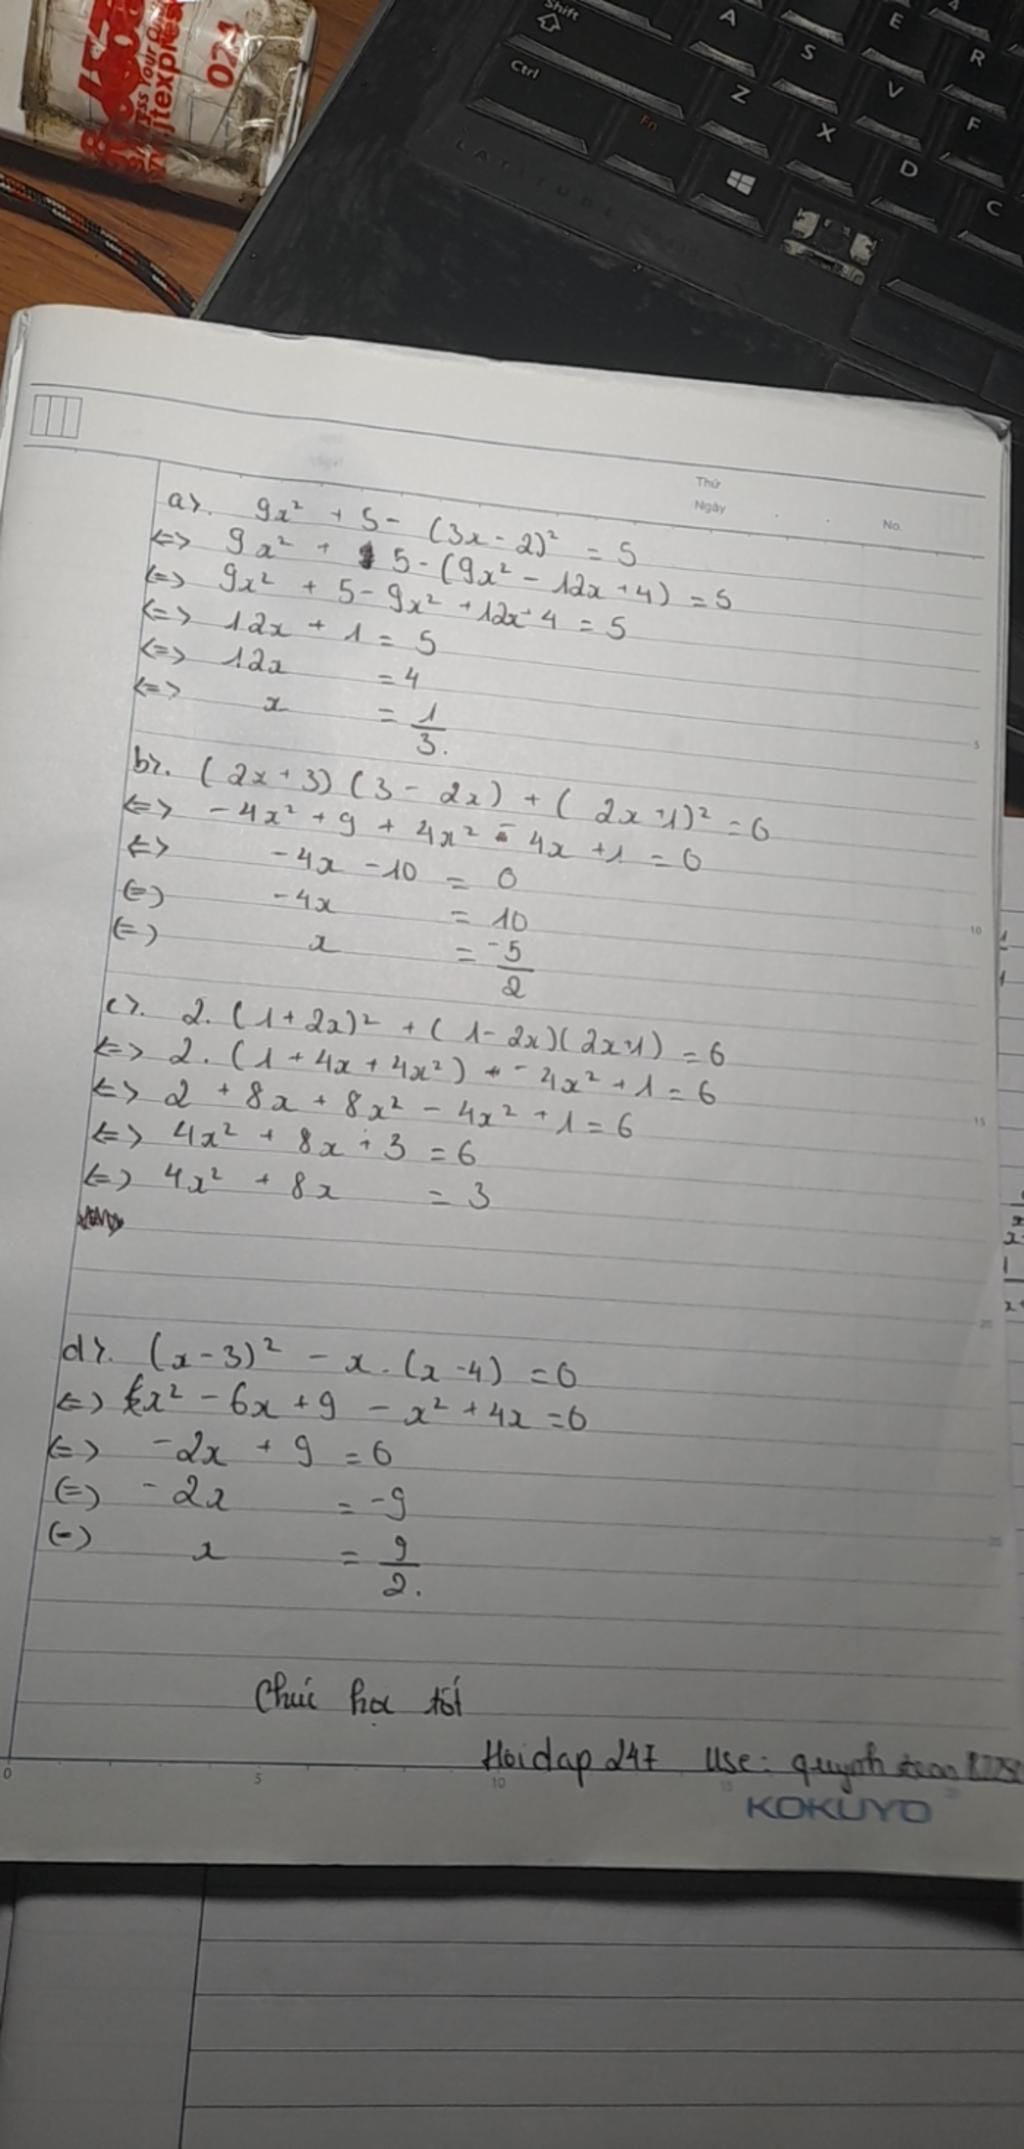 Shift
A
E
4
R
S
Ctrl
Z
V
F
Fn
X
D
C
LATITUDE
024
Thứ
Ngày
No.
a). 9x² + 5 - (3x - 2)² = 5
<=> 9x² + 5 - (9x² - 12x + 4) = 5
<=> 9x² + 5 - 9x² + 12x - 4 = 5
<=> 12x + 1 = 5
<=> 12x = 4
<=> x = 1/3.
b). (2x + 3)(3 - 2x) + (2x - 1)² = 0
<=> - 4x² + 9 + 4x² - 4x + 1 = 0
<=> - 4x - 10 = 0
(=) - 4x = 10
(=) x = -5/2
c). 2. (1 + 2x)² + (1 - 2x)(2x+1) = 6
<=> 2. (1 + 4x + 4x²) + - 4x² + 1 = 6
<=> 2 + 8x + 8x² - 4x² + 1 = 6
<=> 4x² + 8x + 3 = 6
<=> 4x² + 8x = 3
d). (x - 3)² - x. (x - 4) = 0
<=> x² - 6x + 9 - x² + 4x = 0
<=> - 2x + 9 = 0
(=) - 2x = -9
(=) x = 9/2.
Chúc học tốt
Hoidap 247 Use: quynh
0 5 10 15
KOKUYO